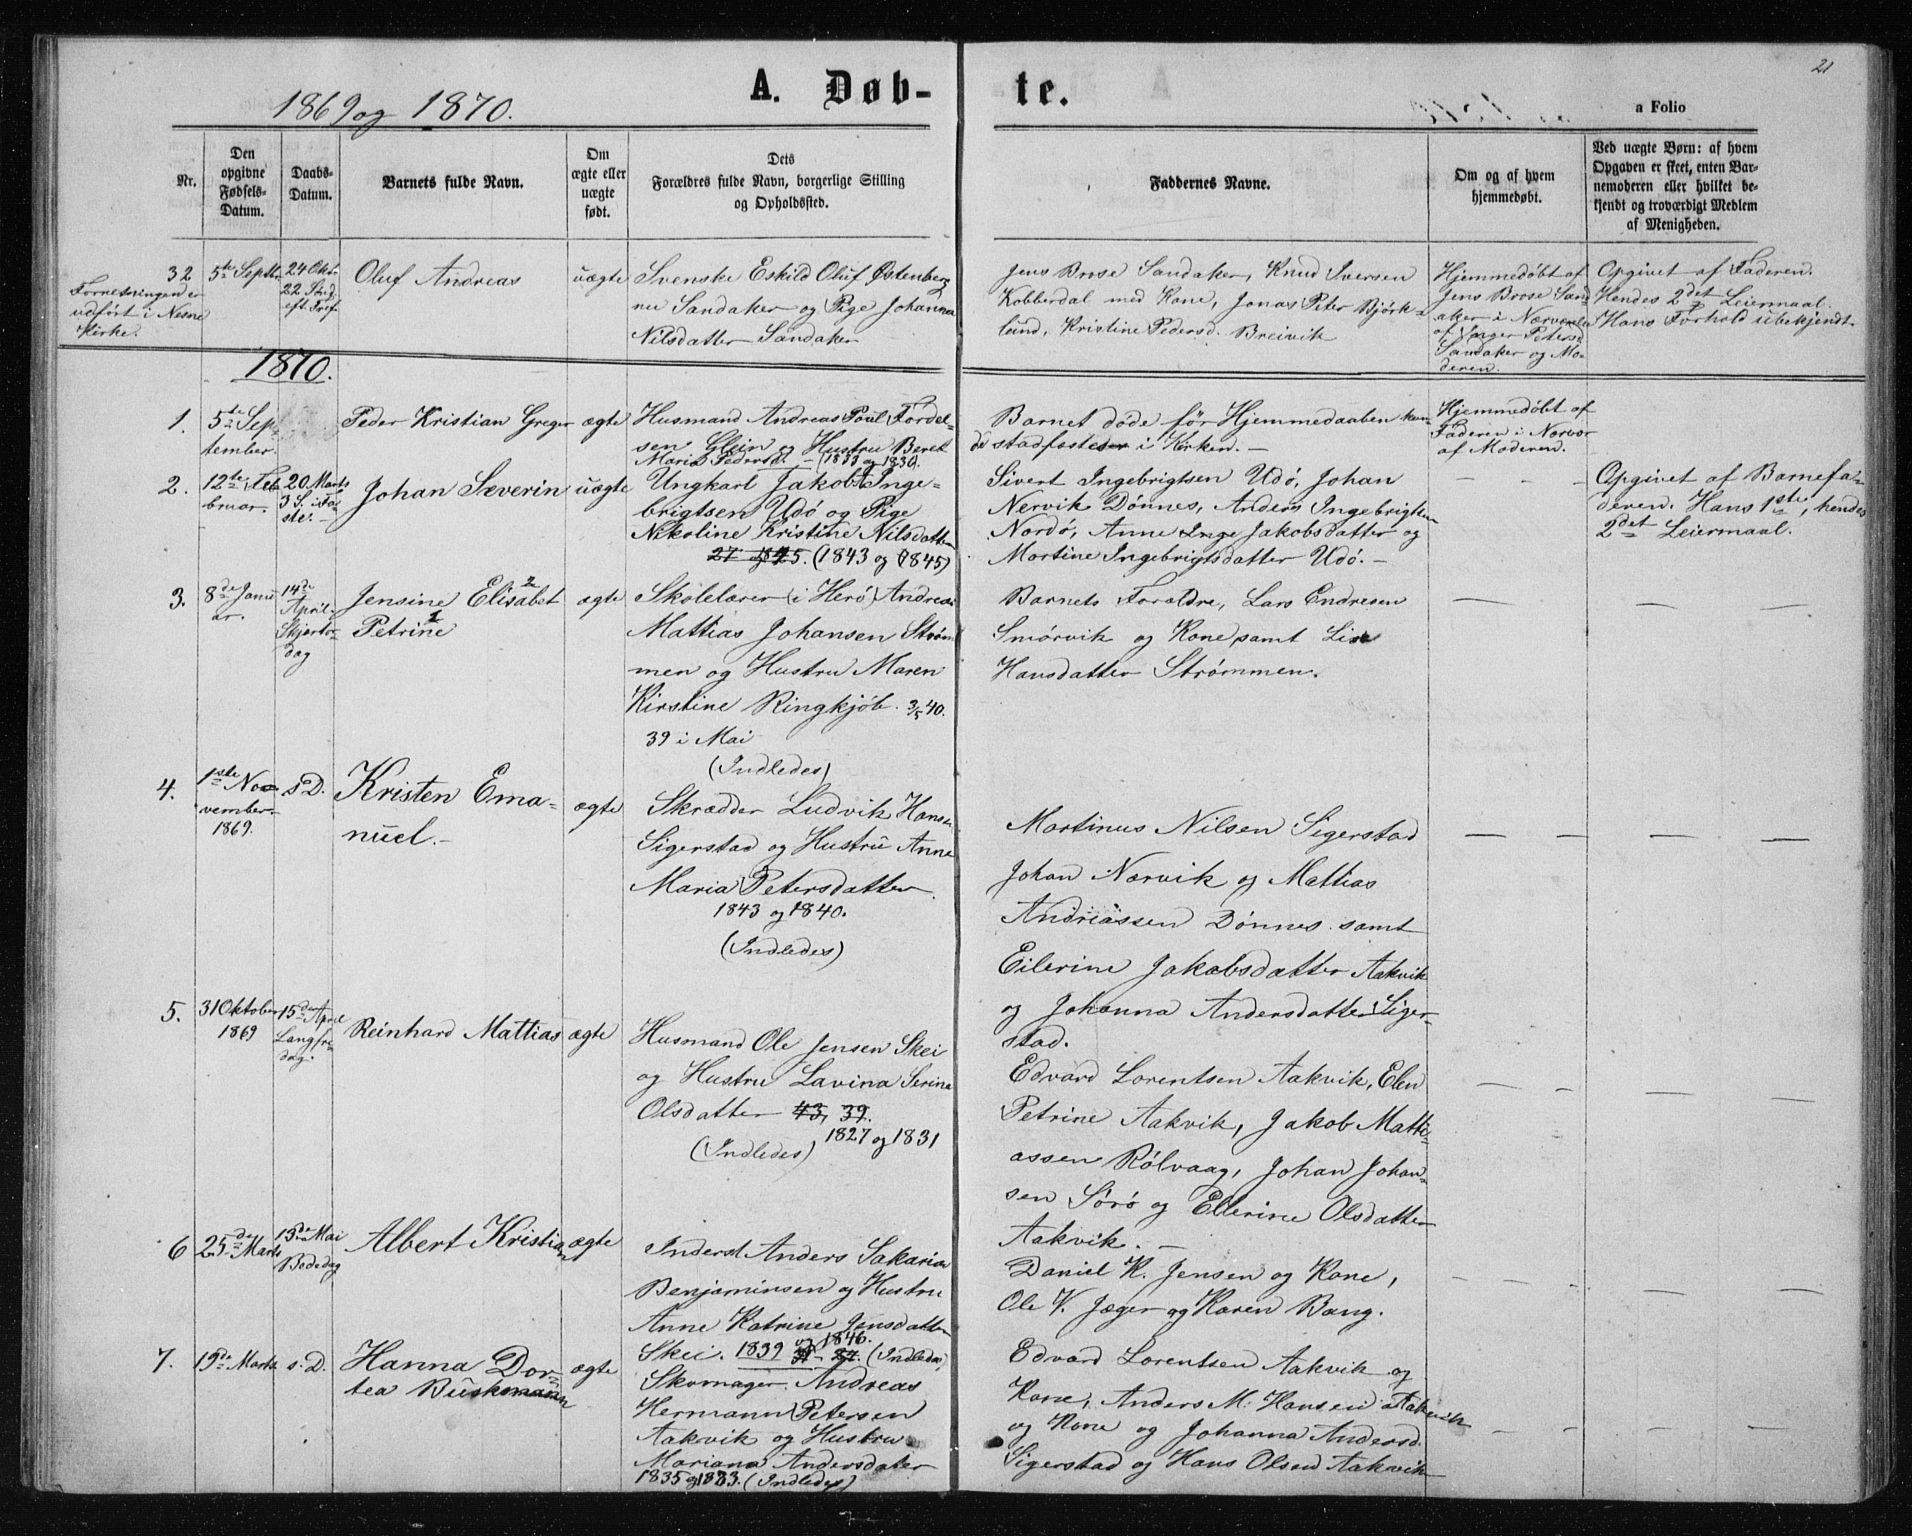 21
1869 og 1870.
A. Døb- te.
a Folio
Nr.
Den
opgivne
Fødsels-
Datum.
Daabs-
Datum.
Barnets fulde Navn.
Om
ægte eller
uægte
født.
Dets
Forældres fulde Navn, borgerlige Stilling
og Opholdssted.
Faddernes Navne.
Om og af hvem
hjemmedøbt.
Ved uægte Børn: af hvem
Opgaven er skeet, enten Bar-
nemoderen eller hvilket be-
kjendt og troværdigt Medlem
af Menigheden.
32
Forretningen er
udført i Nesne
Kirke.
5te Septbr
24 Oktr
22 Sønd
eft. Tref.
Oluf Andreas
uægte
Svenske Eskild Oluf Østenberg
nu Sandaker og Pige Johanna
Nilsdatter Sandaker
Jens Brose Sandaker, Knud Iversen
Kobberdal med Kone, Jonas Peter Bjørk-
lund, Kristine Pedersd. Breivik
Hjemmedøbt af
Jens Brose Sand
aker i Nærværelse
af Inger Petersd
Sandaker og Mo-
deren.
Opgivet af Faderen.
Hendes 2det Leiermaal.
Hans Forhold ubekjendt.
1870.
1.
5te Sep-
tember.
Peder Kristian Greger
ægte
Husmand Andreas Poul Tordel-
sen Glein og Hustru Beret
Maria Pedersd. - (1833 og 1830.
Barnet døde før Hjemmedaaben kun-
de stadfæstes i Kirken. -
Hjemmedøbt af
Faderen i Nærvær
af Moderen.
2.
12te Feb-
bruar.
20 Marts
3 S. i Fa-
ste.
Johan Severin
uægte
Ungkarl Jakob Inge-
brigtsen Udø og Pige
Nikoline Kristine Nilsdatter
27 og 25. (1843 og 1845)
Sivert Ingebrigtsen Udø, Johan
Nervik Dønnes, Anders Ingebrigtsen
Nordø, Anne Inge Jakobsdatter og
Martine Ingebrigtsdatter Udø. -
- - -
Opgivet af Barnefa-
deren. Hans 1ste, hendes
2det Leiermaal.
3.
8de Janu
ar.
14de
April
Skjertor-
dag
Jensine 1 Elisabet 2
Petrine
ægte
Skolelærer (i Herø) Andreas
Mattias Johansen Strøm
men og Hustru Maren
Kirstine Ringkjøb. 3/5 40.
39 i Mai
(Indledes)
Barnets Forældre, Lars Endresen
Smørvik og Kone samt Lise
Hansdatter Strømmen.
4.
1ste No-
vember
1869.
s. D.
Kristen Ema-
nuel. -
ægte
Skrædder Ludvik Hansen
Sigerstad og Hustru Anne
Maria Petersdatter
1843 og 1840.
(Indledes)
Martinus Nilsen Sigerstad
Johan Nærvik og Mattias
Andreassen Dønnes samt
Eilerine Jakobsdatter Aakvik
og Johanna Andersdatter Siger-
stad.
5.
31 Oktober
1869
15de April
Langfre-
dag.
Reinhard Mattias
ægte
Husmand Ole Jensen Skei
og Hustru Lavina Serina
Olsdatter 43, 39.
1827 og 1831
(Indledes)
Edvard Lorentsen Aakvik, Elen
Petrine Aakvik, Jakob Matti-
assen Rølvaag, Johan Johan-
sen Sørø og Ellerine Olsdatter
Aakvik. -
6
25de Marts
13de Mai
Bededag
Albert Kristian
ægte
Inderst Anders Sakarias
Benjaminsen og Hustru
Anne Katrine Jensdatter
Skei. 1839 og 1846. (Indledes)
Daniel K. Jensen og Kone,
Ole V. Jæger og Karen Bang.
7.
19de Marts
s. D.
Hanna Dor-
tea Buskmann
ægte
Skomager Andreas
Hermann Petersen
Aakvik og Hustru
Mariana Andersdatter
1835 og 1833. (Indledes)
Edvard Lorentsen Aakvik og
Kone, Anders M. Hansen Aakvik
og Kone og Johanna Andersd.
Sigerstad og Hans Olsen Aakvik